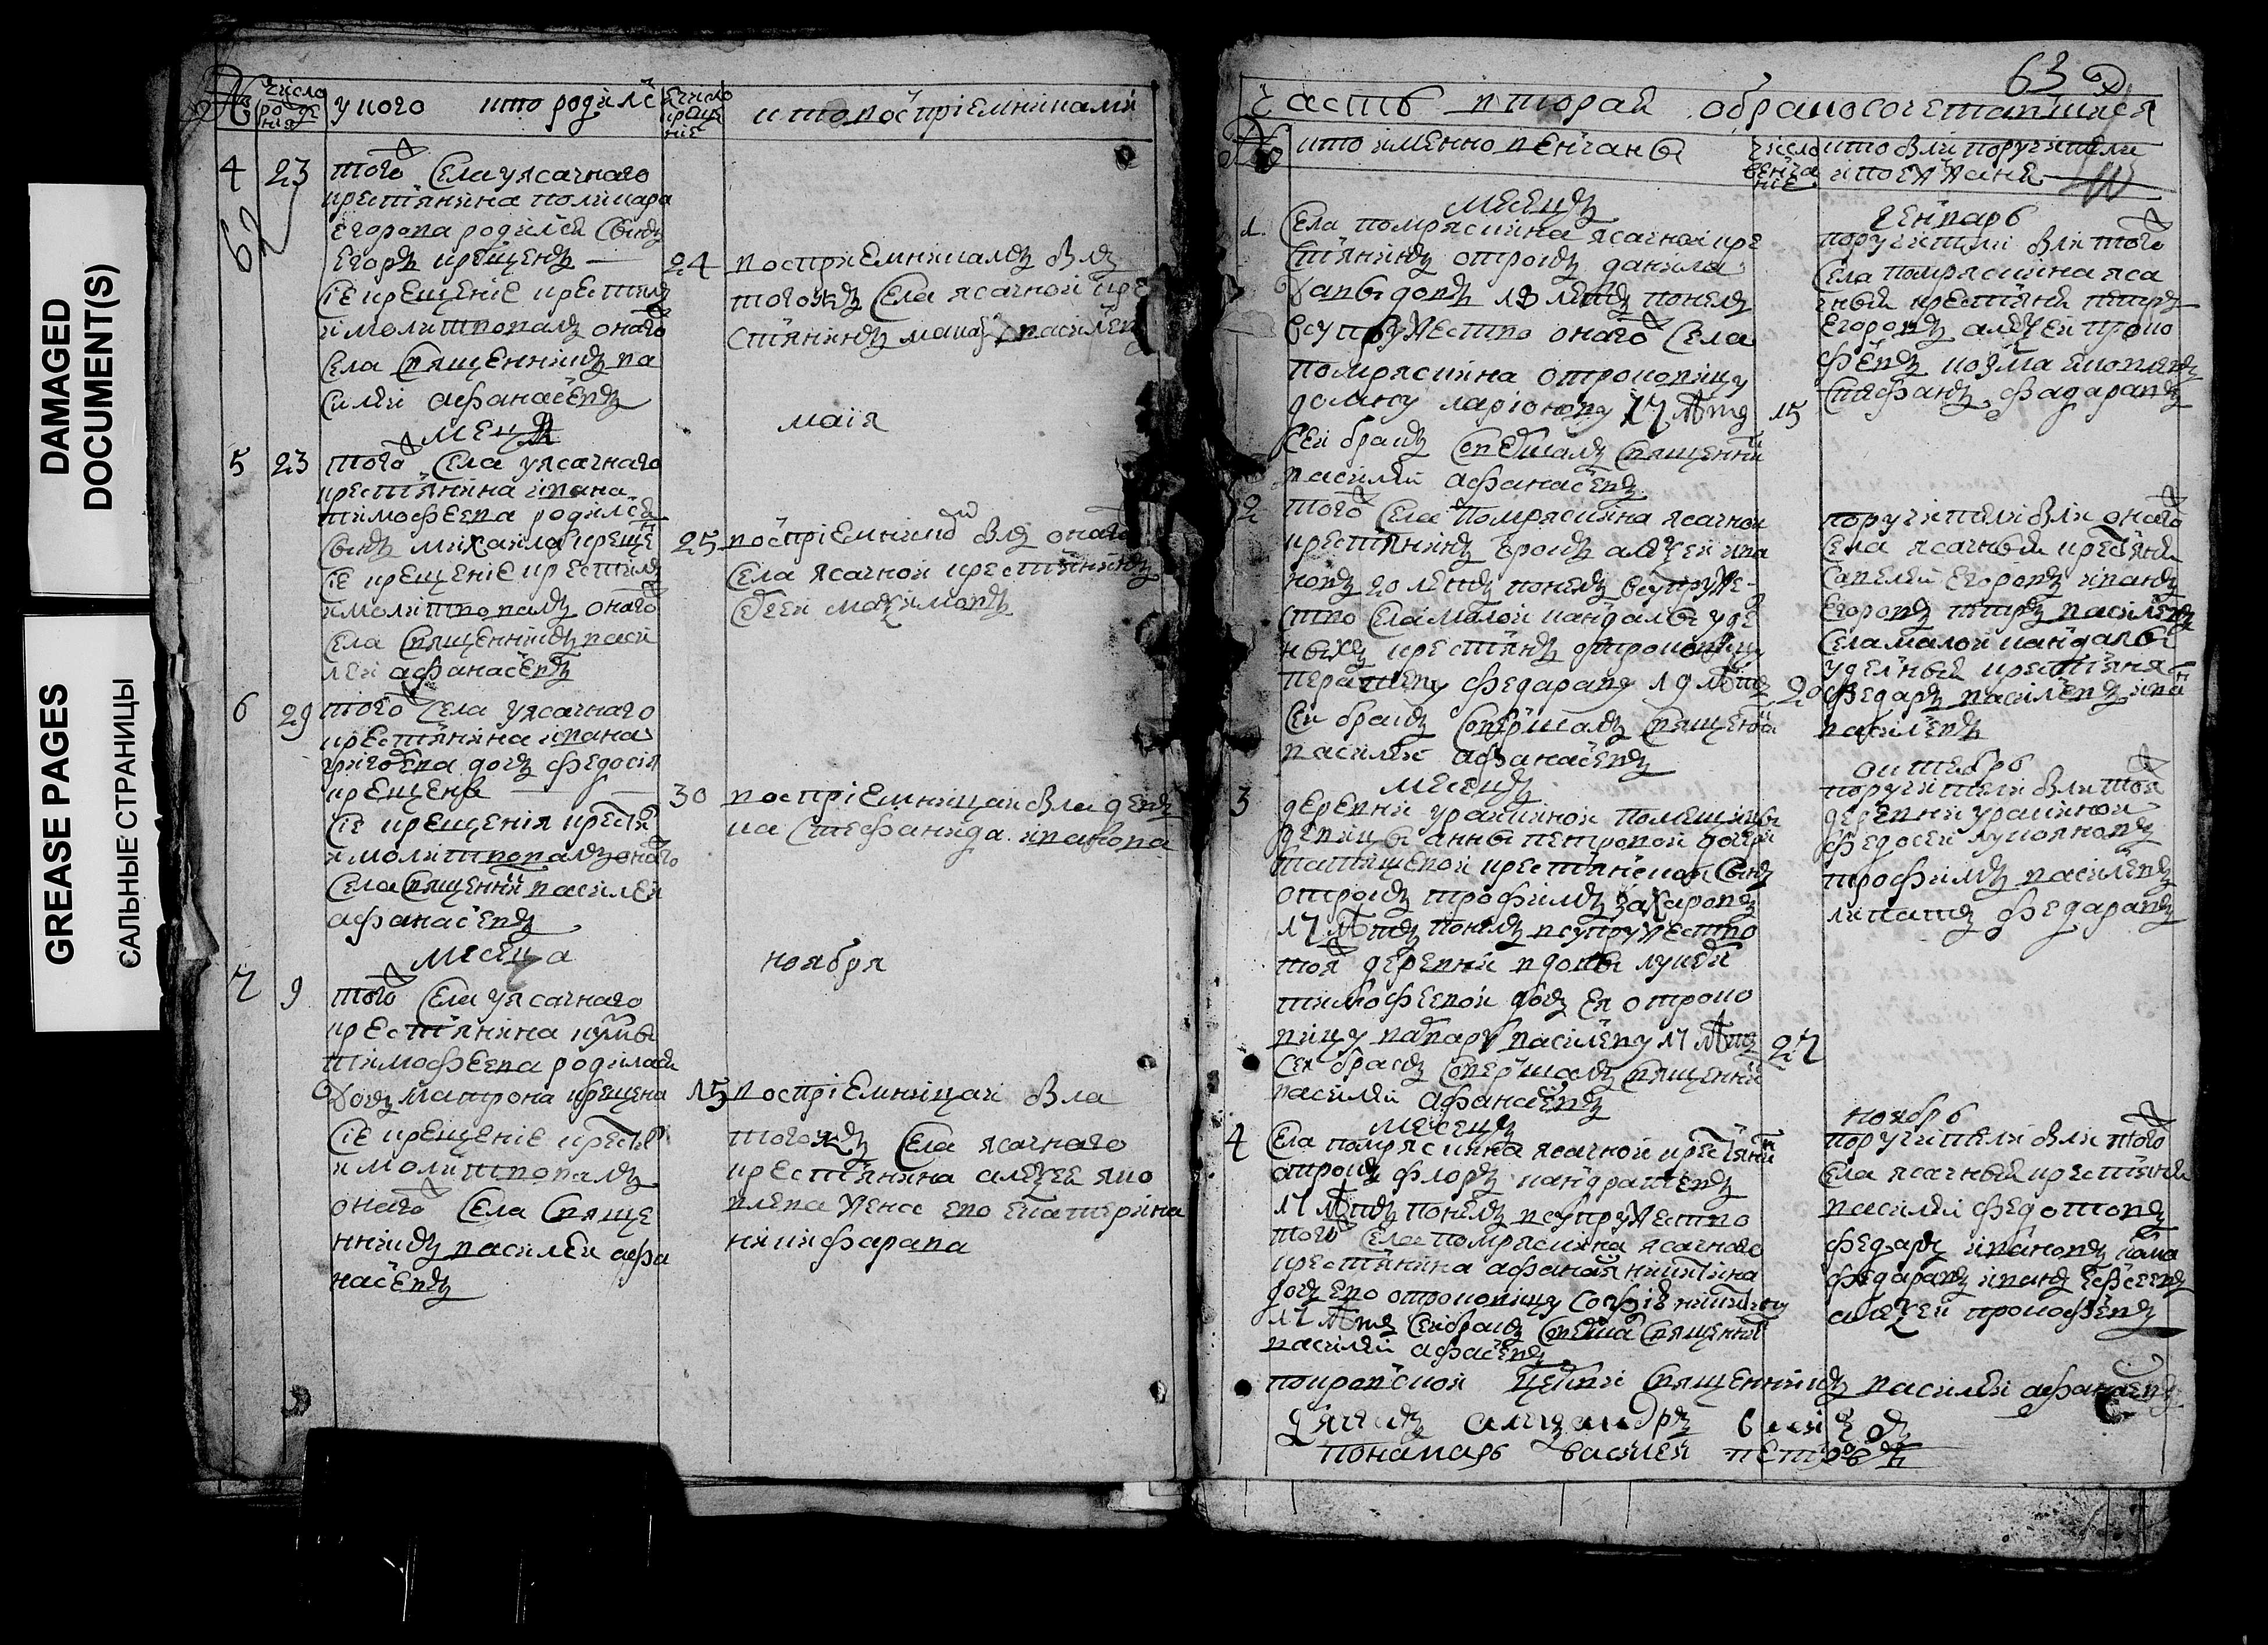 DAMAGED
DOCUMENT(S)
GREASE PAGES
САЛЬНЫЕ СТРАНИЦЫ
№
число
рожде
ния
у кого кто родилс
число
креще
ние
кто воспрiемниками
4 23 того села у ясачнаго
62
крестьянина поликара
егорова родился сынъ
егоръ крещенъ
24
сiе крещенiе крестилъ
и молитвовалъ онаго
села священникъ ва
силей афанасьевъ
воспрiемникамъ былъ
того жъ села ясачной кре
стьянинъ василевъ
месяца маiя
5 23 того села у ясачнаго
крестьянина ивана
тимофеева родился
сынъ михаила креще
25
сiе крещенiе крестилъ
и молитвовалъ онаго
села священникъ васи
лей афанасьевъ
воспрiемнико былъ онаго
села ясачной крестьянинъ
максимовъ
6 29 того села у ясачнаго
крестьянина ивана
григоева дочь федосiя
крещена
30
сiе крещенiя крести
и молитвовалъ онаго
села священни василей
афанасьевъ
воспрiемницаи была девъ
ка стефанида иванова
месеца ноября
7 9 того села у ясачнаго
крестьянина кузмы
тимофеева родилась
дочь матрона крещена
15
сiе крещенiе крести
и молитвовалъ
онаго села свяще
нникъ василей афа
насьевъ
воспрiемницаи была
того жъ села ясачнаго
крестьянина алексея яко
влева жена ево екатерина
никифарава
63
часть вторая о бракосочетавшихся
№ кто именно венчаны
число
венча
ние
кто были поручители
и поежжаня
месецъ генварь
1 села помряскина ясачной кре
стьянинъ отрокъ данила
давыдовъ 18 летъ понелъ
в супружество онаго села
помряскина отроковицу
домну ларiонову 17 летъ
15
сей бракъ совершалъ священни
василей афанасьевъ
поручители были того
села помряскина яса
чныи крестьяни петръ
егоровъ алексей проко
фьевъ козма яковлевъ
стефанъ фадаравъ
2 того села помряскина ясачной
крестьянинъ ѳрокъ алексей ива
новъ 20 летъ понелъ в супруже
ство села малой кандалы уде
ныхъ крестьянъ отроковицу
федараву 19 летъ
20
сей бракъ совершалъ священни
василей афанасьевъ
поручители были онаго
села ясачныи крестьяни
савелей егоровъ иванъ
егоровъ петръ василевъ
села малой кандалы
уделныи крестьяня
федаръ василевъ ива
василевъ
месецъ октябрь
3 деревни ураикиной помещицы
девицы анны петровой дочери
татищевой крестьянской сынъ
отрокъ трофимъ захаровъ
17 летъ понелъ в супружество
тоя деревни вдовы лукеи
тимофеевой дочь ея отроко
вицу варвару василеву 17 летъ
27
сей бракъ совершалъ священни
василей афанасьевъ
поручители были тоя
деревни ураикиной
федосей лукояновъ
трофимъ василевъ
игнатъ федаравъ
месецъ ноябрь
4 села помряскина ясачной крестьяни
отрокъ флоръ кандратьевъ
17 летъ понелъ в супружество
того села помряскина ясачнаго
крестьянина афанася никитина
дочь ево отроковицу софiю никитину
17 летъ сей бракъ совеша священни
василей афасьевъ
поручители были того
села ясачныи крестьяни
василей федотовъ
федаръ ивановъ кама
федаравъ иванъ евсеевъ
алексей прокофьевъ
покровской церкви священникъ василей афанасьевъ
дьячекъ александръ
понамарь василей петровъ